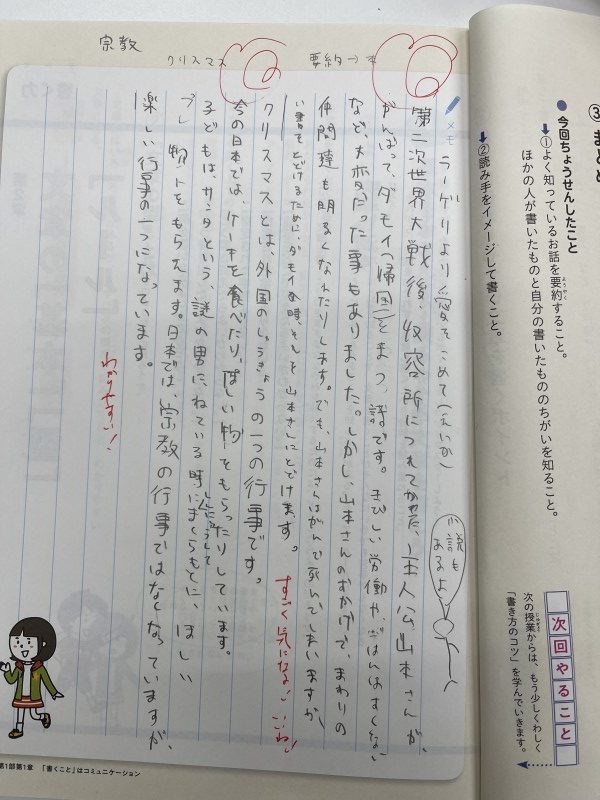 ③まとと
● 今回ちょうせんしたこと
➡①よく知っているお話を要約すること。
ようやく
ほかの人が書いたものと自分の書いたもののちがいを知ること。
➡②読み手をイメージして書くこと。
次回やること
次の授業からは、もう少しくわしく
じゅぎょう
「書き方のコツ」を学んでいきます。
宗教
クリスマス
要約→本
メモ
ラーゲリより愛をこめて(えいが)
小説も
あるよ
第二次世界大戦後、収容所につれてかれた、主人公山本さんが、
がんばって、ダモイ(帰国)をまつ、話です。きびしい労働や、ごはんはすくない
など、大変だった事もありました。しかし、山本さんのおかげで、まわりの
仲間達も明るくなれたりします。でも、山本さんはがんで死んでしまいますが、
い書をとどけるために、ダモイの時、それを山本さんにとどけます。
すごく気になる!いいね!
クリスマスとは、外国のしゅうきょうの一つの行事です。
今の日本では、ケーキを食べたり、ほしい物をもらったりしています。
子どもは、サンタという、謎の男に、ねている時にまくらもとに、ほしい
プレ物ントをもらえます。日本では、宗教の行事ではなくなっていますが、
楽しい行事の一つになっています。
わかりやすい!
第1部第1章 「書くこと」はコミュニケーション